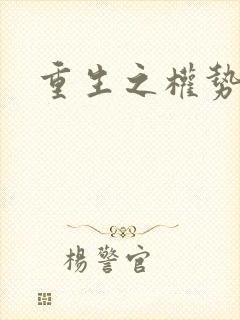 重生之權勢
楊警官